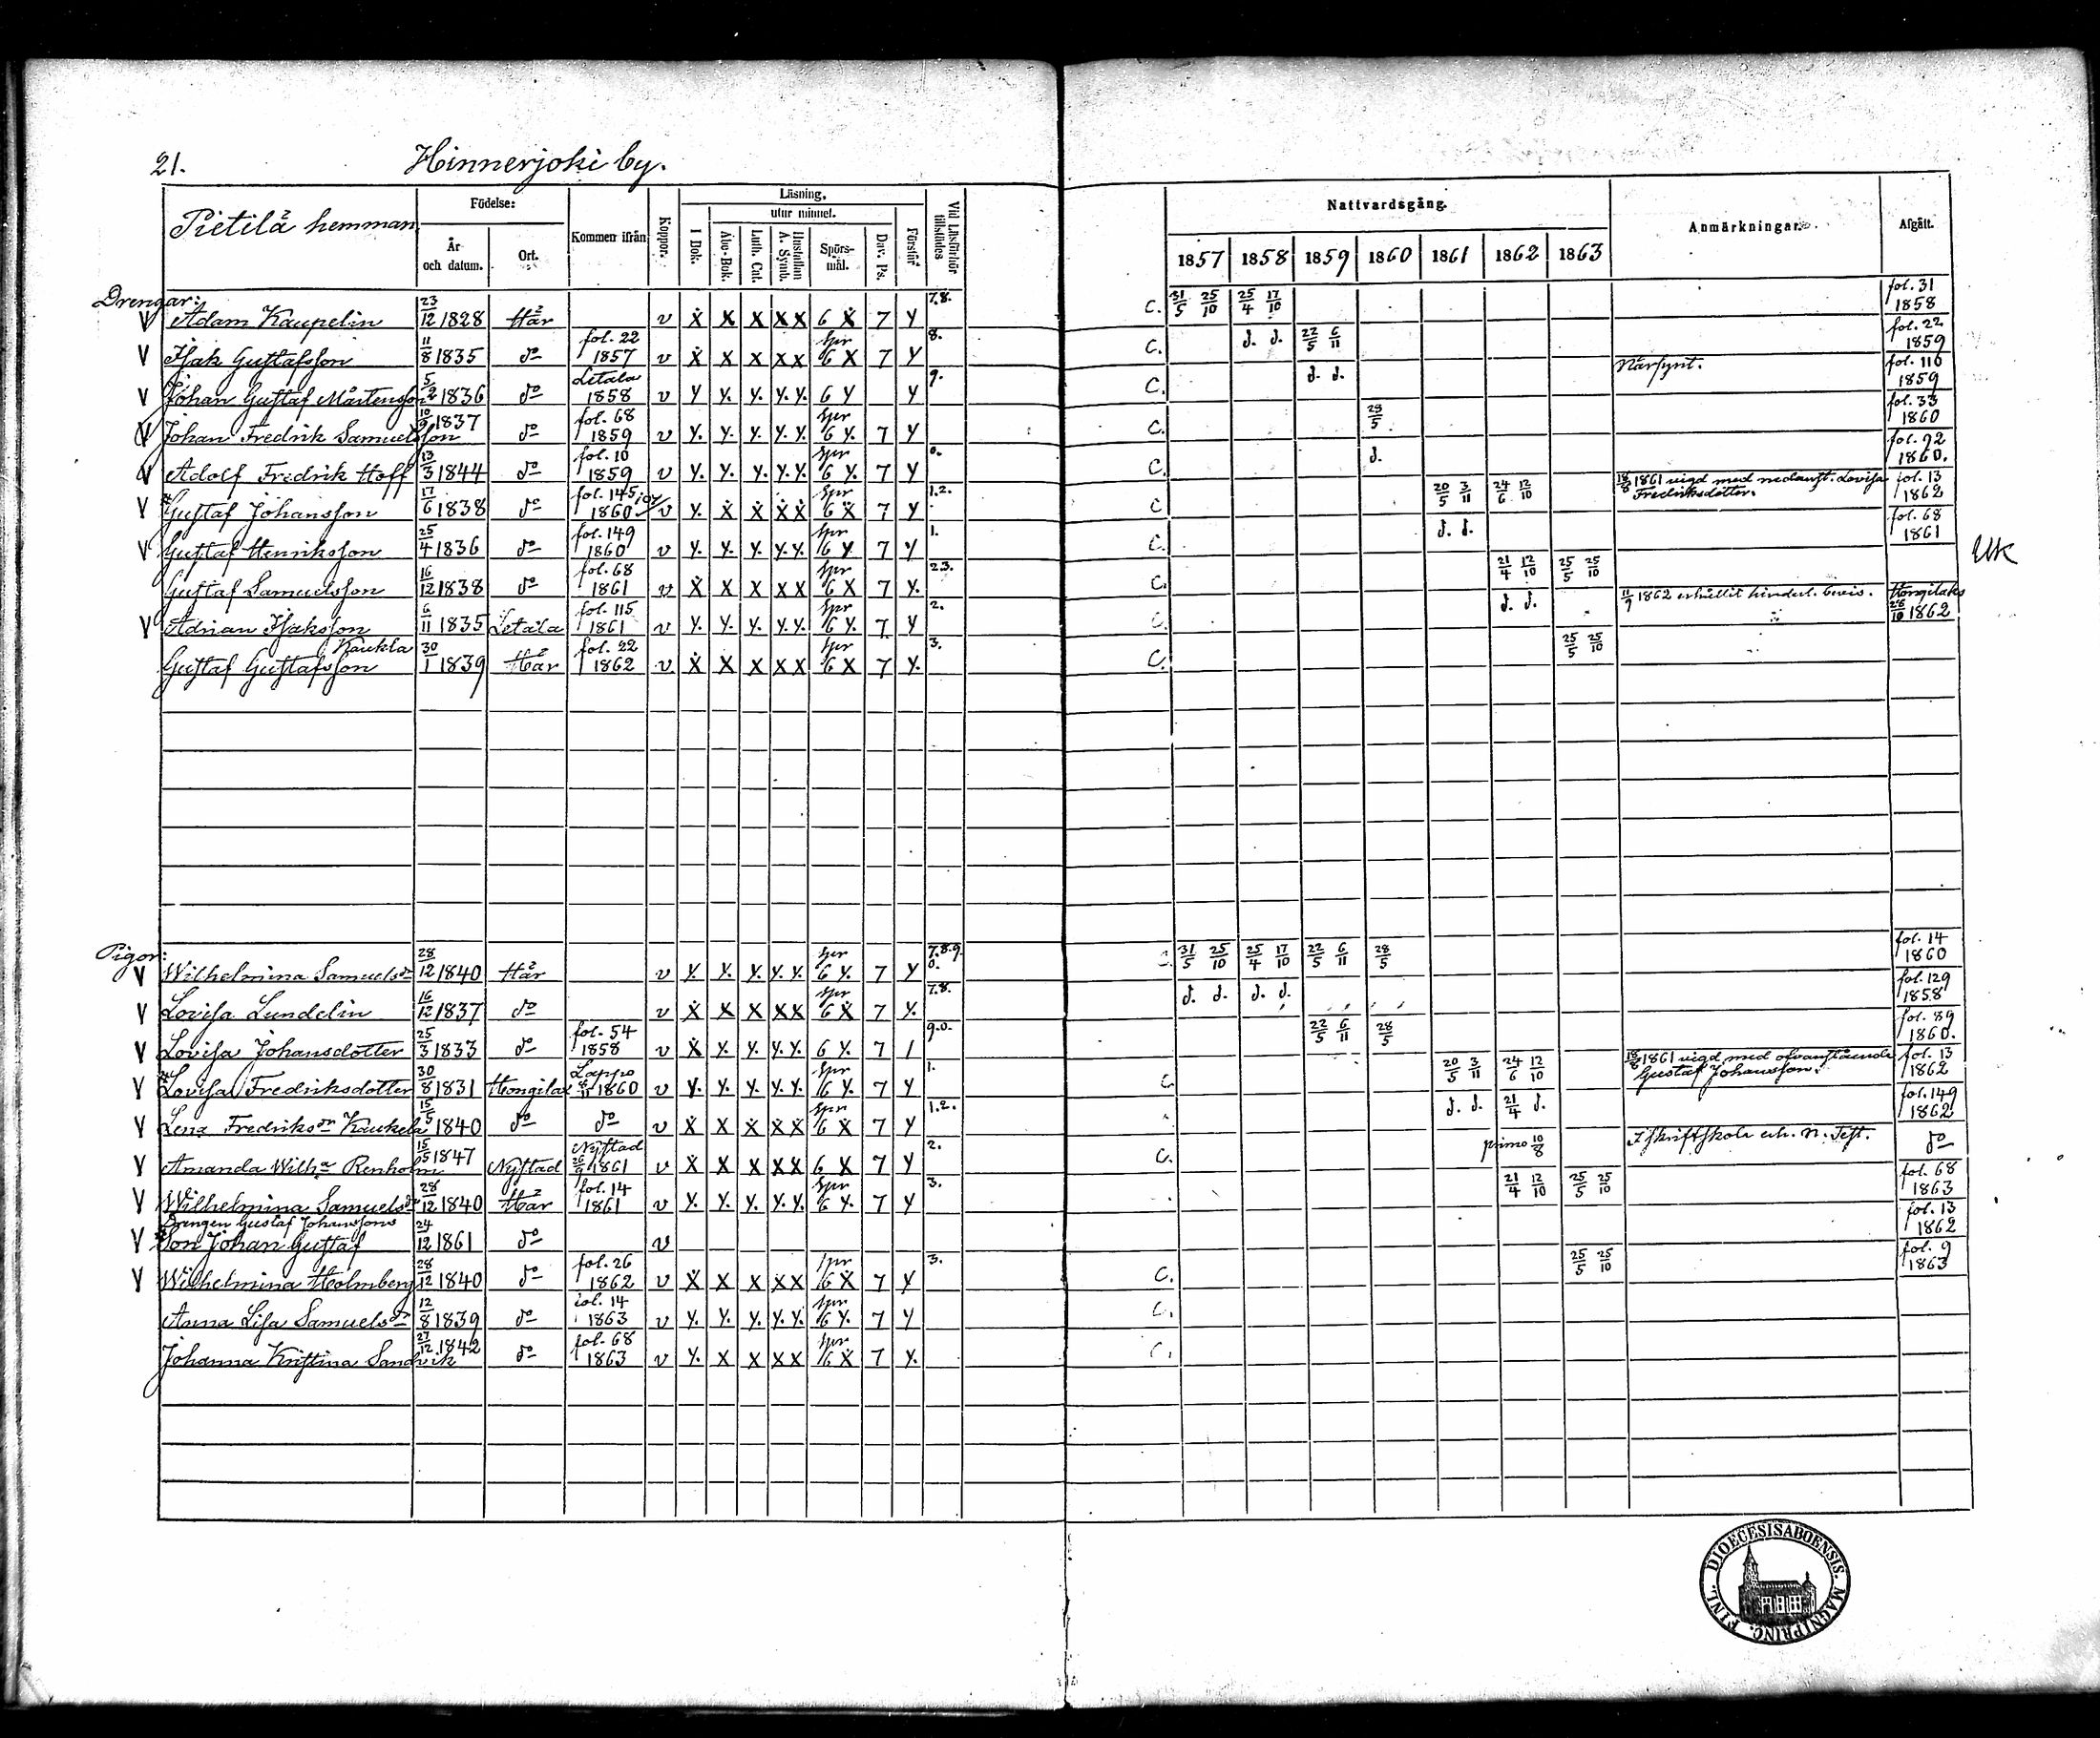 21. Hinnerjoki by.
Pietilä hemman
Födelse: År och datum. Ort. Kommen ifrån Koppor. Läsning. I Bok. utur minnet. Åbo-Bok. Luth. Cat. Hustaflan A. Symb. Spörs-mål. Dav. Ps. Förstår Vid Läsförhör tillstädes Nattvardsgång. 1857 1858 1859 1860 1861 1862 1863 Anmärkningar. Afgått.
Drengar:
V Adam Kaupelin 23/12 1828 Här v X X X X X 6 X 7 Y 7.8. C. 31/5 25/10 25/4 17/10 fol. 31 1858
V Isak Gustafsson 11/8 1835 do fol. 22 1857 v X X X X X spr 6 X 7 Y 8. C. d. d. 22/5 6/11 fol. 22 1859
V Johan Gustaf Mårtensson 5/2 1836 do Letala 1858 v Y Y. Y. Y. Y. 6 Y Y 9. C. d. d. Närsynt. fol. 110 1859
V Johan Fredrik Samuelsson 10/9 1837 do fol. 68 1859 v Y. Y. Y. Y. Y. spr 6 Y. 7 Y C. 28/5 fol. 33 1860
V Adolf Fredrik Hoff 13/3 1844 do fol. 10 1859 v Y. Y. Y. Y. Y. spr 6 Y. 7 Y 0. C. d. fol. 92 1860.
V Gustaf Johansson 17/6 1838 do fol. 145 1860 v Y. X X X X spr 6 X 7 Y 1.2. C 20/5 3/11 24/6 12/10 18/8 1861 vigd med nedanst. Lovisa Fredriksdotter. fol. 13 1862
V Gustaf Henriksson 25/4 1836 do fol. 149 1860 v Y. Y. Y. Y. Y. spr 6 Y 7 Y 1. C. d. d. fol. 68 1861
Uk
Gustaf Samuelsson 16/12 1838 do fol. 68 1861 v X X X X X spr 6 X 7 Y. 2.3. C. 21/4 12/10 25/5 25/10
V Adrian Isaksson 6/11 1835 Letala fol. 115 1861 v Y. Y. Y. Y. Y. spr 6 Y. 7 Y 2. C. d. d. 11/9 1862 erhållit hinderl. bevis. Hongilaks 26/10 1862
Kaukla
Gustaf Gustafsson 30/1 1839 Här fol. 22 1862 v X X X X X spr 6 X 7 Y. 3. C. 25/5 25/10
Pigor:
V Wilhelmina Samuelsdr 28/12 1840 Här v Y. Y. Y. Y. Y. spr 6 Y. 7 Y 7.8.9. 0. C. 31/5 25/10 25/4 17/10 22/5 6/11 28/5 fol. 14 1860
V Lovisa Lundelin 16/12 1837 do v X X X X X spr 6 X 7 Y. 7.8. d. d. d. d. fol. 129 1858
V Lovisa Johansdotter 25/3 1833 do fol. 54 1858 v X Y. Y. Y. Y. 6 Y. 7 / 9.0. 22/5 6/11 28/5 fol. 89 1860.
V Lovisa Fredriksdotter 30/8 1831 Hongilax Lappo 8/11 1860 v Y. Y. Y. Y. Y. spr 6 Y. 7 Y 1. C. 20/5 3/11 24/6 12/10 18/8 1861 vigd med ofvanstående Gustaf Johansson. fol. 13 1862
V Lena Fredriksdr Kaukela 15/5 1840 do do v X X X X X spr 6 X 7 Y 1.2. d. d. 21/4 d. fol. 149 1862
V Amanda Wilha Renholm 15/5 1847 Nystad Nystad 26/9 1861 v X X X X X 6 X 7 Y 2. C. primo 10/8 I skriftskola erh. N. Test. do
V Wilhelmina Samuelsdr 28/12 1840 Här fol. 14 1861 v Y. Y. Y. Y. Y. spr 6 Y. 7 Y 3. 21/4 12/10 25/5 25/10 fol. 68 1863
Drengen Gustaf Johanssons
V Son Johan Gustaf 24/12 1861 do v fol. 13 1862
V Wilhelmina Holmberg 28/12 1840 do fol. 26 1862 v X X X X X spr 6 X 7 Y 3. C. 25/5 25/10 fol. 9 1863
Anna Lisa Samuelsdr 12/8 1839 do fol. 14 1863 v Y. Y. Y. Y. Y. spr 6 Y. 7 Y C.
Johanna Kristina Sandvik 27/12 1842 do fol. 68 1863 v Y. X X X X spr 6 X 7 Y. C.
FINL. DIOECESIS ABOENSIS. MAGNI PRINC.